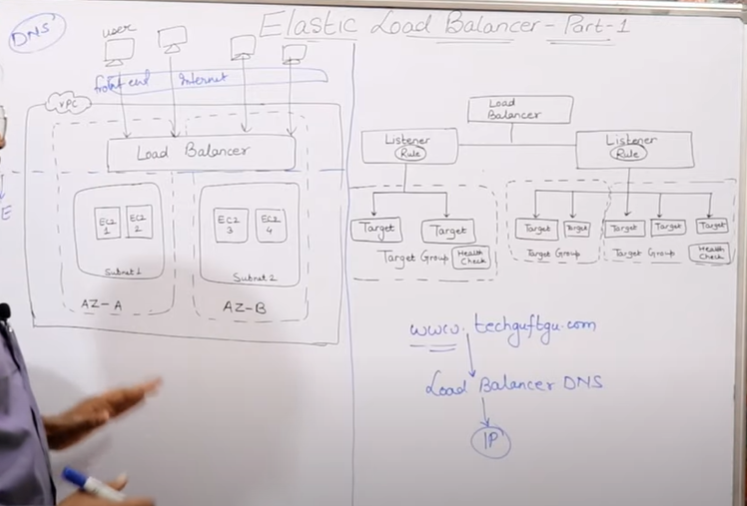 DNS
Elastic Load Balancer - Part-1
user
front end Internet
VPC
Load Balancer
EC2 1
EC2 2
EC2 3
EC2 4
Subnet 1
Subnet 2
AZ-A
AZ-B
E
Load
Balancer
Listener
Rule
Listener
Rule
Target
Target
Target Group
Health
Check
Target
Target
Target Group
Target
Target
Target
Target Group
Health
Check
www.techguftgu.com
Load Balancer DNS
IP